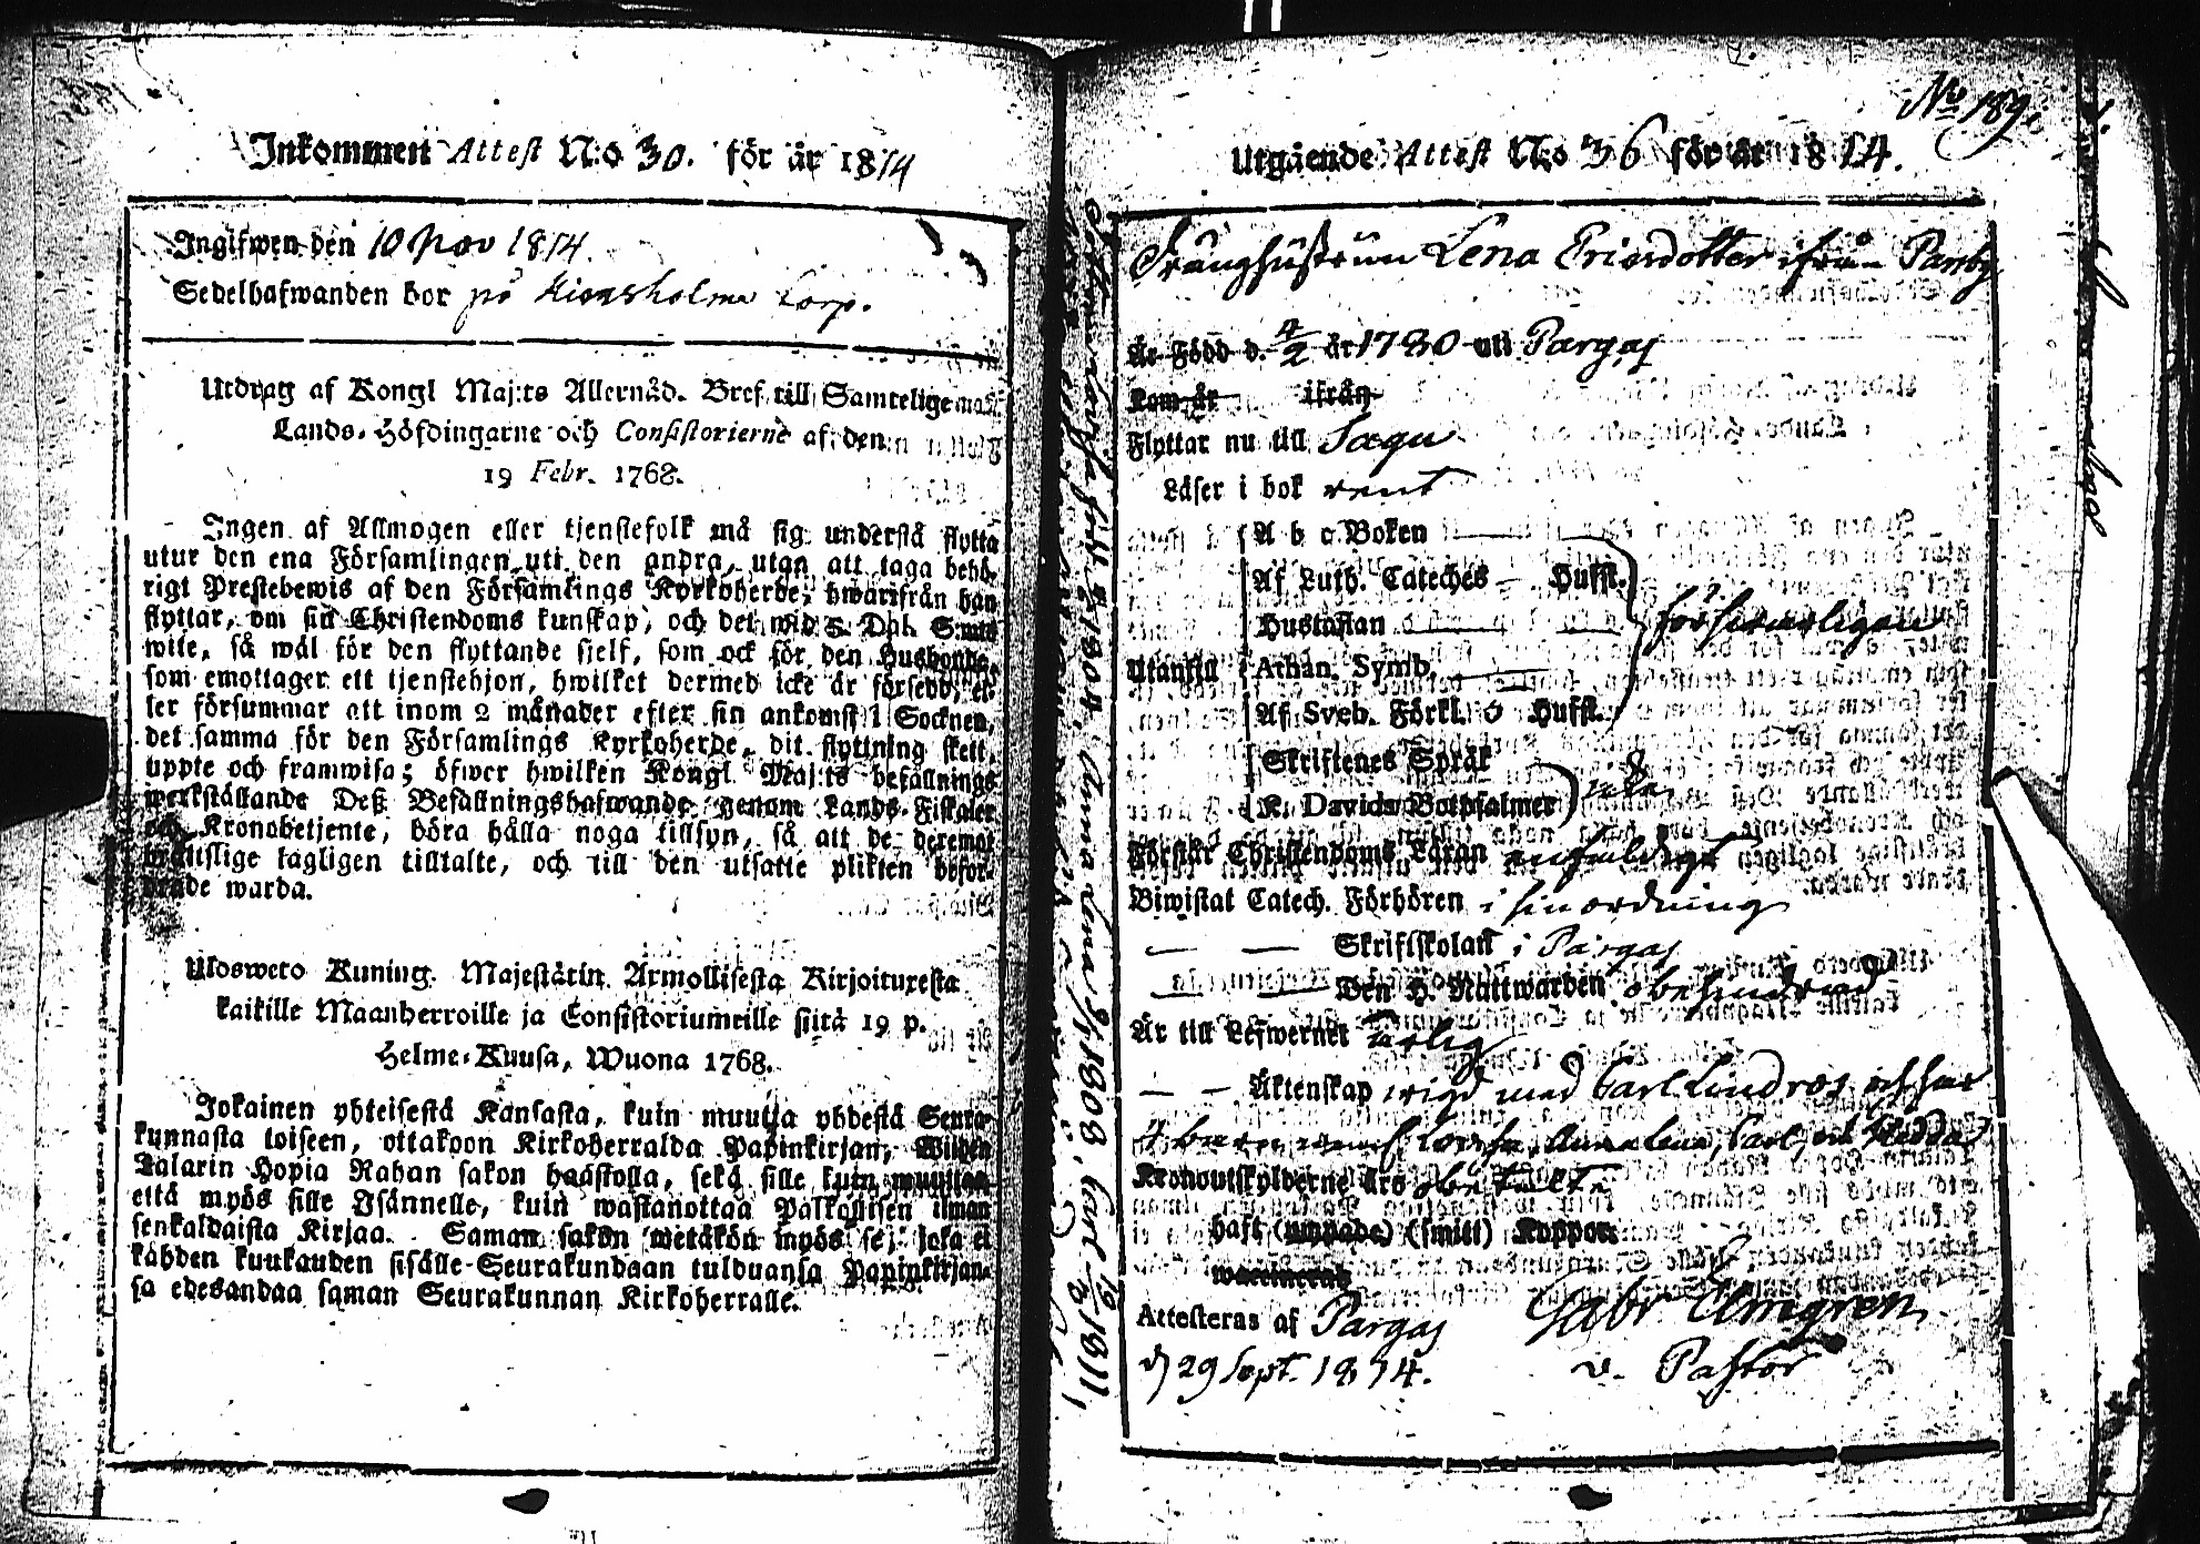 Inkommen Attest N:o 30. för år 1814
Ingifwen den 10 Nov 1814.
Sedelhafwanden bor på Torp.
Utdrag af Kongl Maj:ts Allernåd. Bref till Samtelige
Lands-Höfdingarne och Consistorierne af den
19 Febr. 1768.
Ingen af Allmogen eller tjenstefolk må sig understå flytta
utur den ena Församlingen uti den andra, utan att taga behö-
rigt Prestebewis af den Församlings Kyrkoherde, hwarifrån han
flyttar, om sin Christendoms kunskap, och det wid 5 Dal. S:mts
wite, så wäl för den flyttande sjelf, som ock för den Husbonde,
som emottager ett tjenstehjon, hwilket dermed icke är försedd, el-
ler försummar att inom 2 månader efter sin ankomst i Socknen,
det samma för den Församlings Kyrkoherde, dit flyttning skett,
uppte och framwisa; öfwer hwilken Kongl Maj:ts befallnings
werkställande Deß Befallningshafwande genom Lands-Fiskaler
och Kronobetjente, böra hålla noga tillsyn, så att de deremot
brottslige lagligen tilltalte, och till den utsatte plikten befor-
drade warda.
Ulosweto Kuning. Majestätin Armollisesta Kirjoituxesta
kaikille Maanherroille ja Consistoriumeille siitä 19 p.
Helme-Kuusa, Wuona 1768.
Jokainen yhteisestä Kansasta, kuin muutta yhdestä Seura-
kunnasta toiseen, ottakoon Kirkoherralda Papinkirjan, Wiiden
Talarin Hopia Rahan sakon haastolla, sekä sille kuin muuttaa
että myös sille Isännelle, kuin wastanottaa Palkollisen ilman
senkaldaista Kirjaa. Saman sakon wetäkön myös se, joka ei
kahden kuukauden sisälle Seurakundaan tulduansa Papinkirjan-
sa edesandaa saman Seurakunnan Kirkoherralle.
N:o 189
Utgående Attest N:o 36 för år 1814.
Lena Ericsdotter ifrån Parsby
Är Född d. 4/2 år 1780 uti Pargas
Kom år ifrån
Flyttar nu till Sagu
Läser i bok rent
A b c Boken
Af Luth. Cateches Hufst.
Hustaflan
Utantill Athan. Symb. försvarligen
Af Sveb. Förkl. Hufst.
Skriftenes Språk
K. Davids Botpsalmer
Förstår Christendoms Läran enfaldigt
Biwistat Catech. Förhören i sin ordning
— — Skriftskolan i Pargas
— — Den H. Nattwarden obehindrad
Är till Lefwernet ärlig
— — Äktenskap wigd med Carl Lindros och har
4 barn Lovisa, Anna Lena, Carl, och Hedda
Kronoutskylderne äro obetalte
haft (ympade) (smitt) Koppor
waccinerad
Attesteras af Pargas Gabr Elmgren
d 29 Sept. 1814. v. Pastor